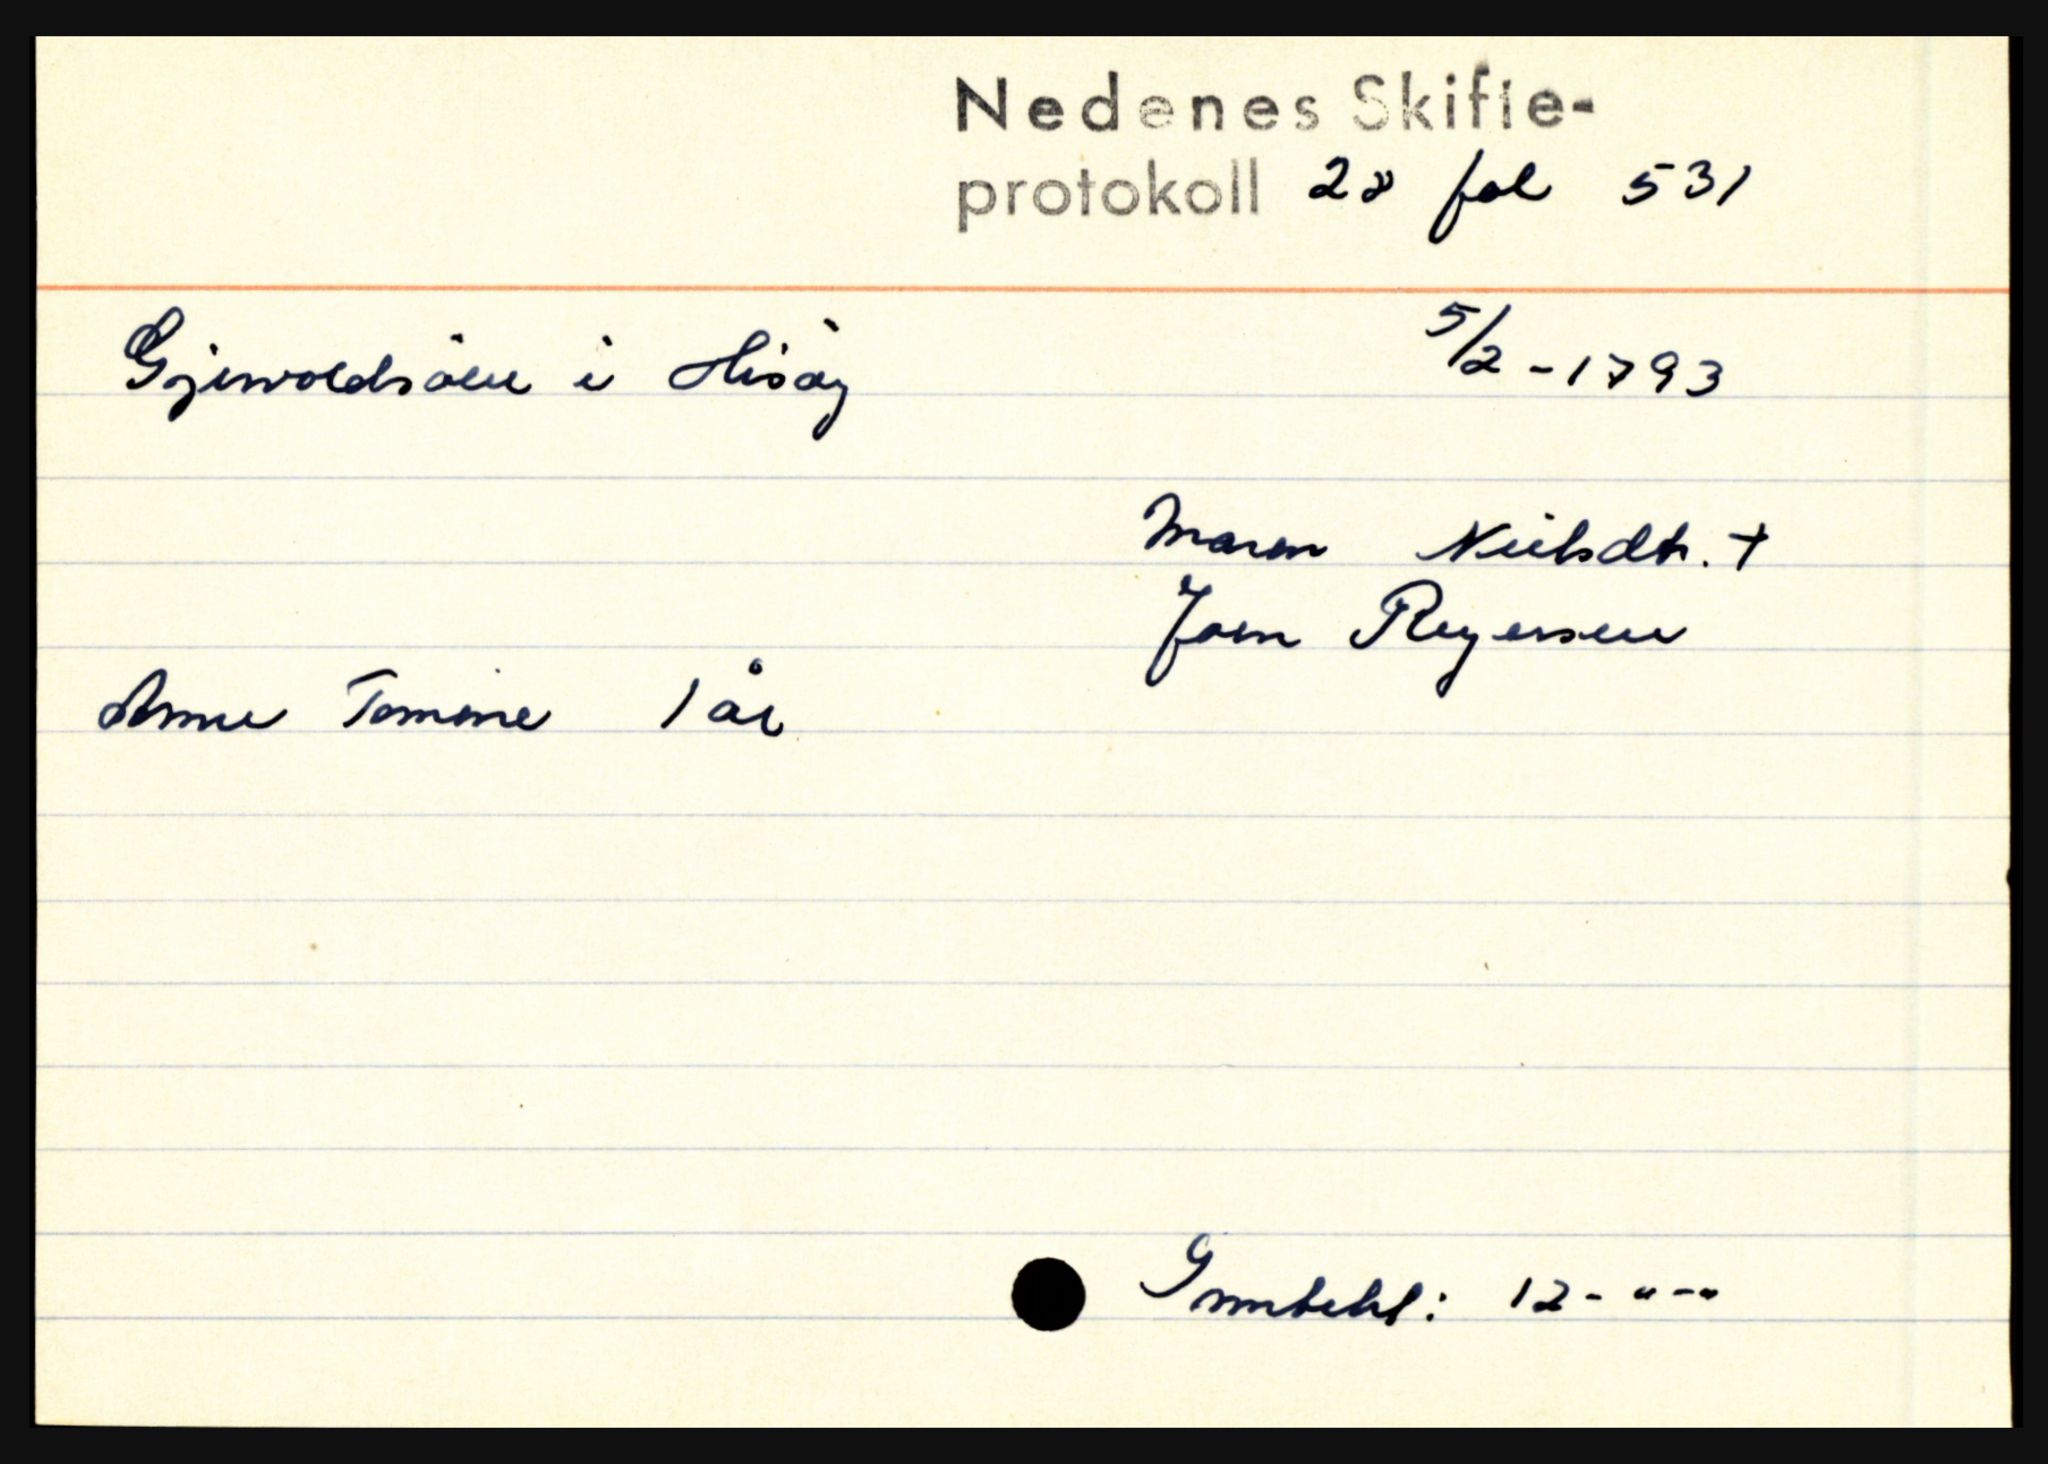 Nedenes Skifte-
protokoll 28 fol 531
Gjervoldsøen i Hisøy 5/2-1793
Maren Nielsdtr. +
Joen Reyersen
Anne Tomine 1 år
12-"-"